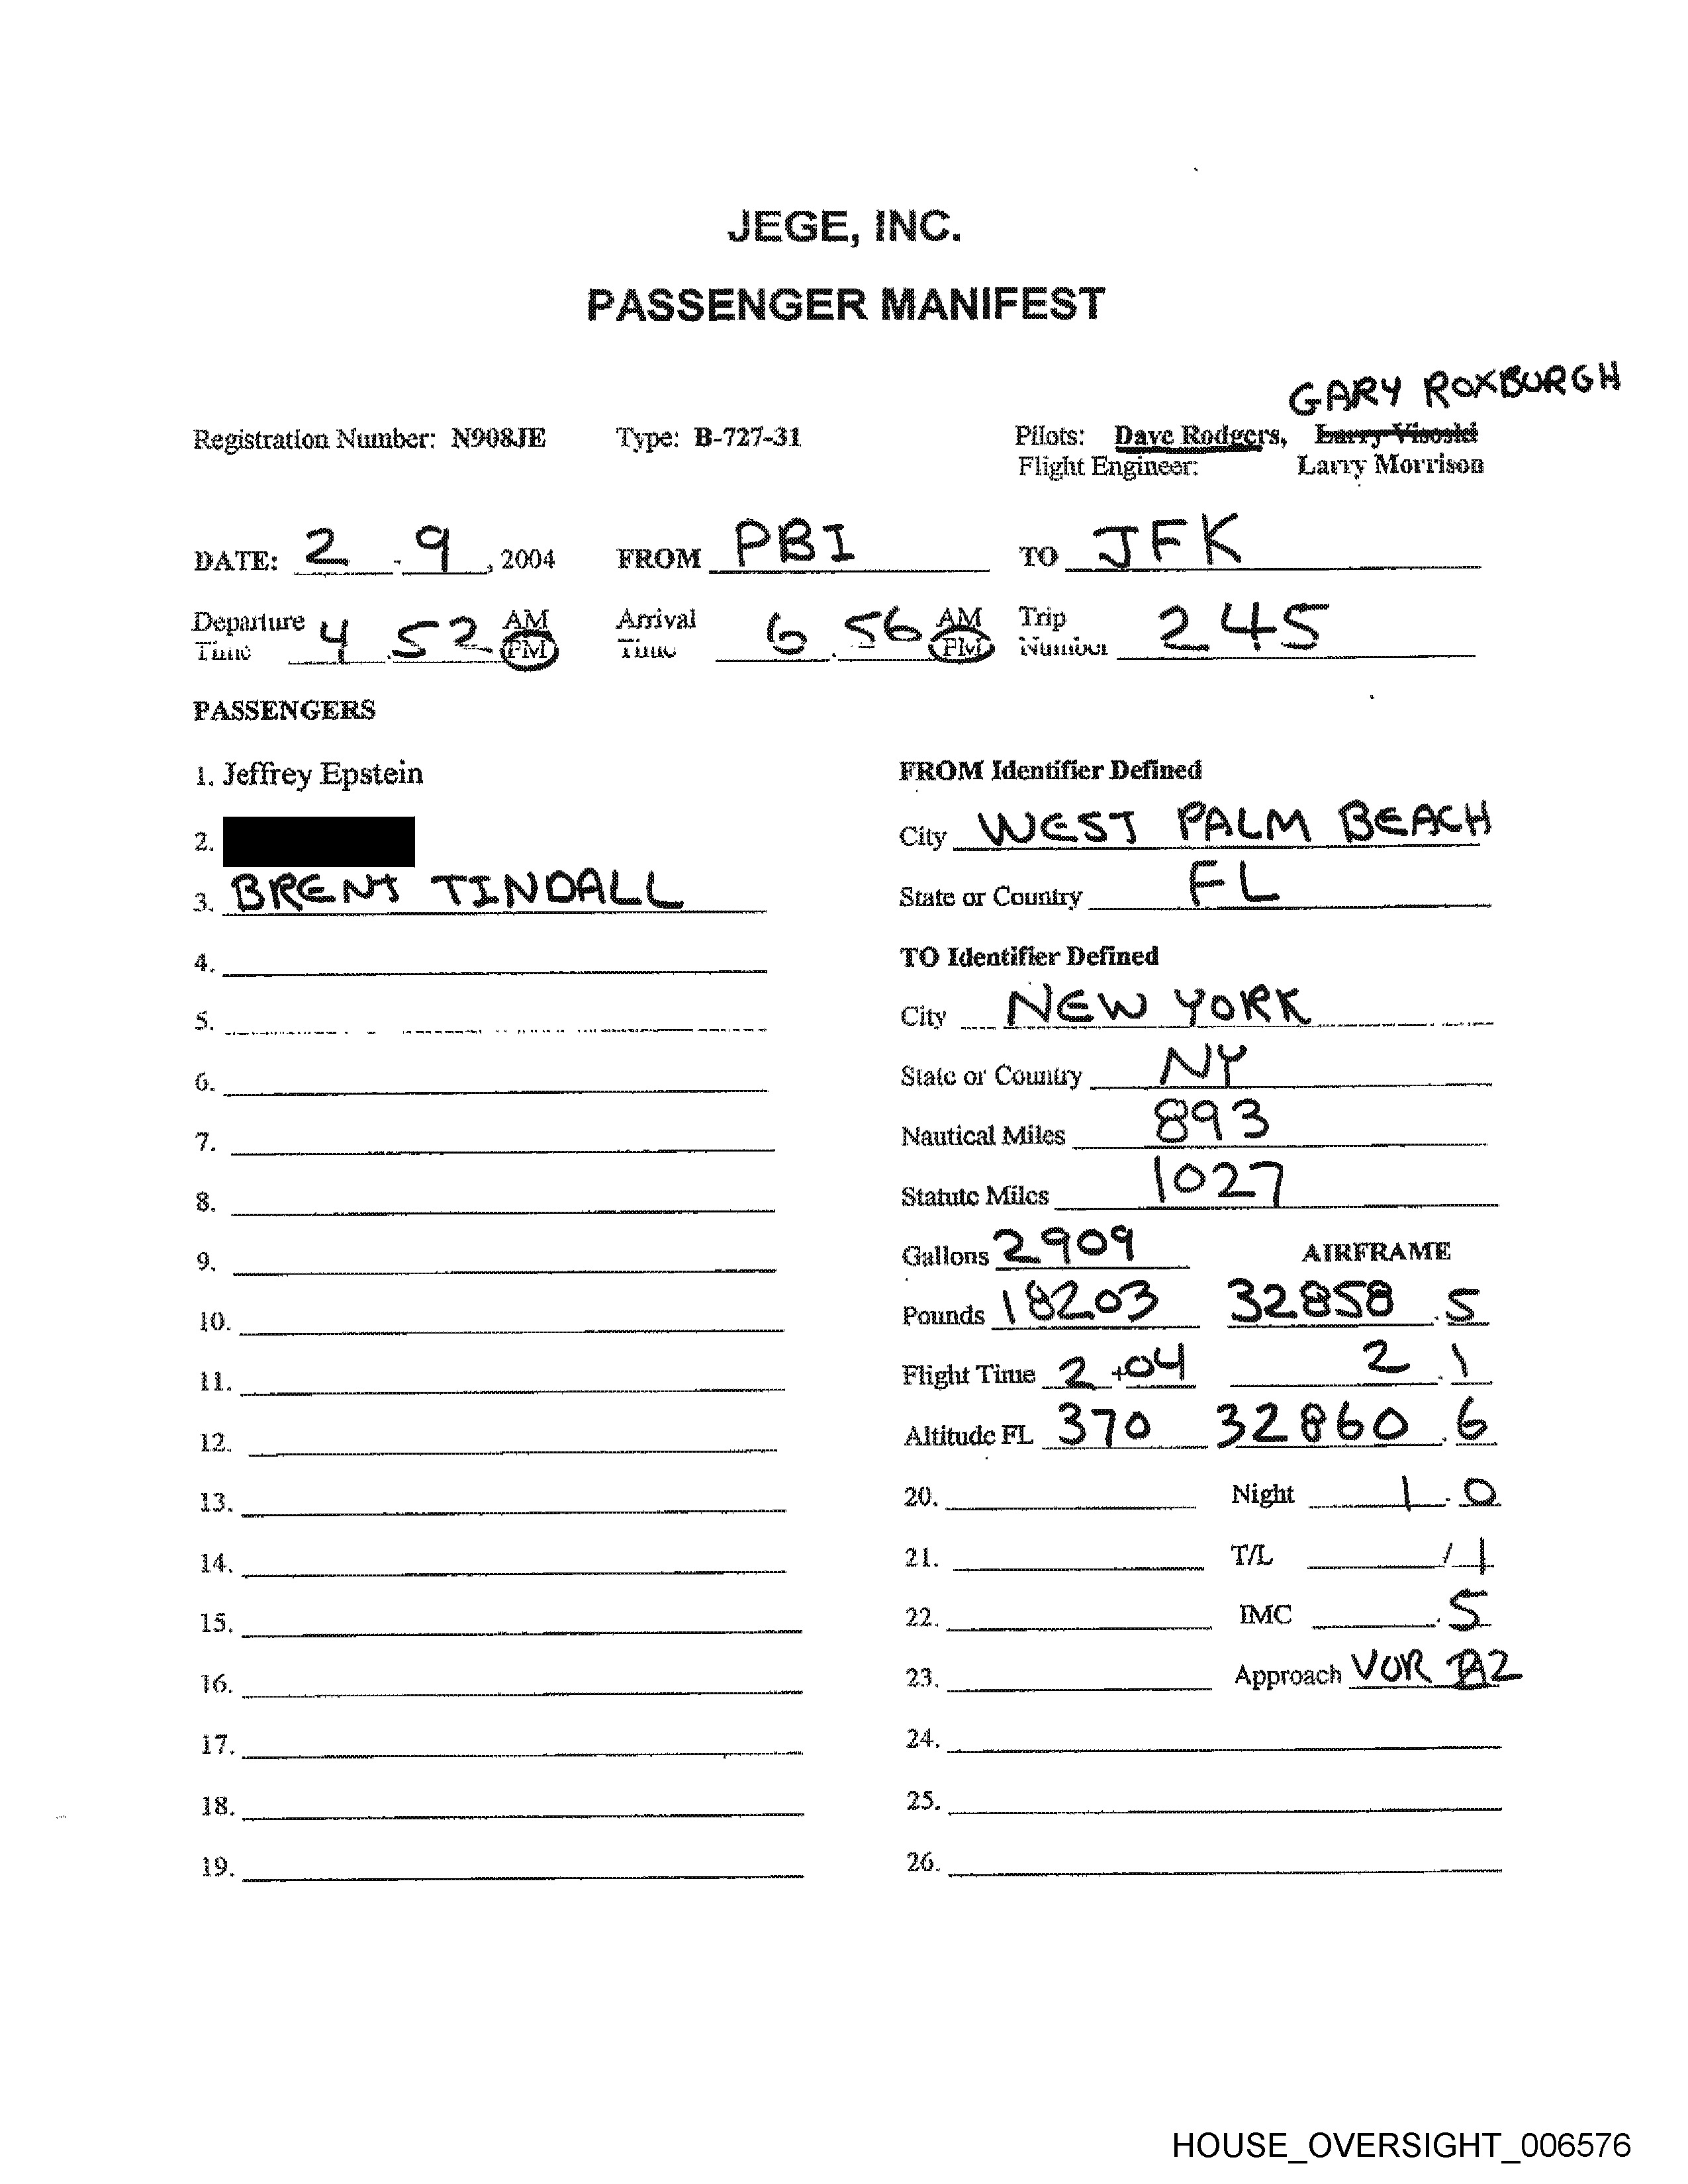 JEGE, INC.
PASSENGER MANIFEST
GARY ROXBURGH
Registration Number: N908JE Type: B-727-31 Pilots: Dave Rodgers, Larry Visoski
Flight Engineer: Larry Morrison
DATE: 2 - 9, 2004 FROM PBI TO JFK
Departure Time 4.52 AM PM Arrival Time 6.56 AM PM Trip Number 245
PASSENGERS
1. Jeffrey Epstein
2.
3. BRENT TINDALL
4.
5.
6.
7.
8.
9.
10.
11.
12.
13.
14.
15.
16.
17.
18.
19.
FROM Identifier Defined
City WEST PALM BEACH
State or Country FL
TO Identifier Defined
City NEW YORK
State or Country NY
Nautical Miles 893
Statute Miles 1027
Gallons 2909 AIRFRAME
Pounds 18203 32858.5
Flight Time 2+04 2.1
Altitude FL 370 32860.6
20. Night 1.0
21. T/L /1
22. IMC .5
23. Approach VOR
24.
25.
26.
HOUSE_OVERSIGHT_006576